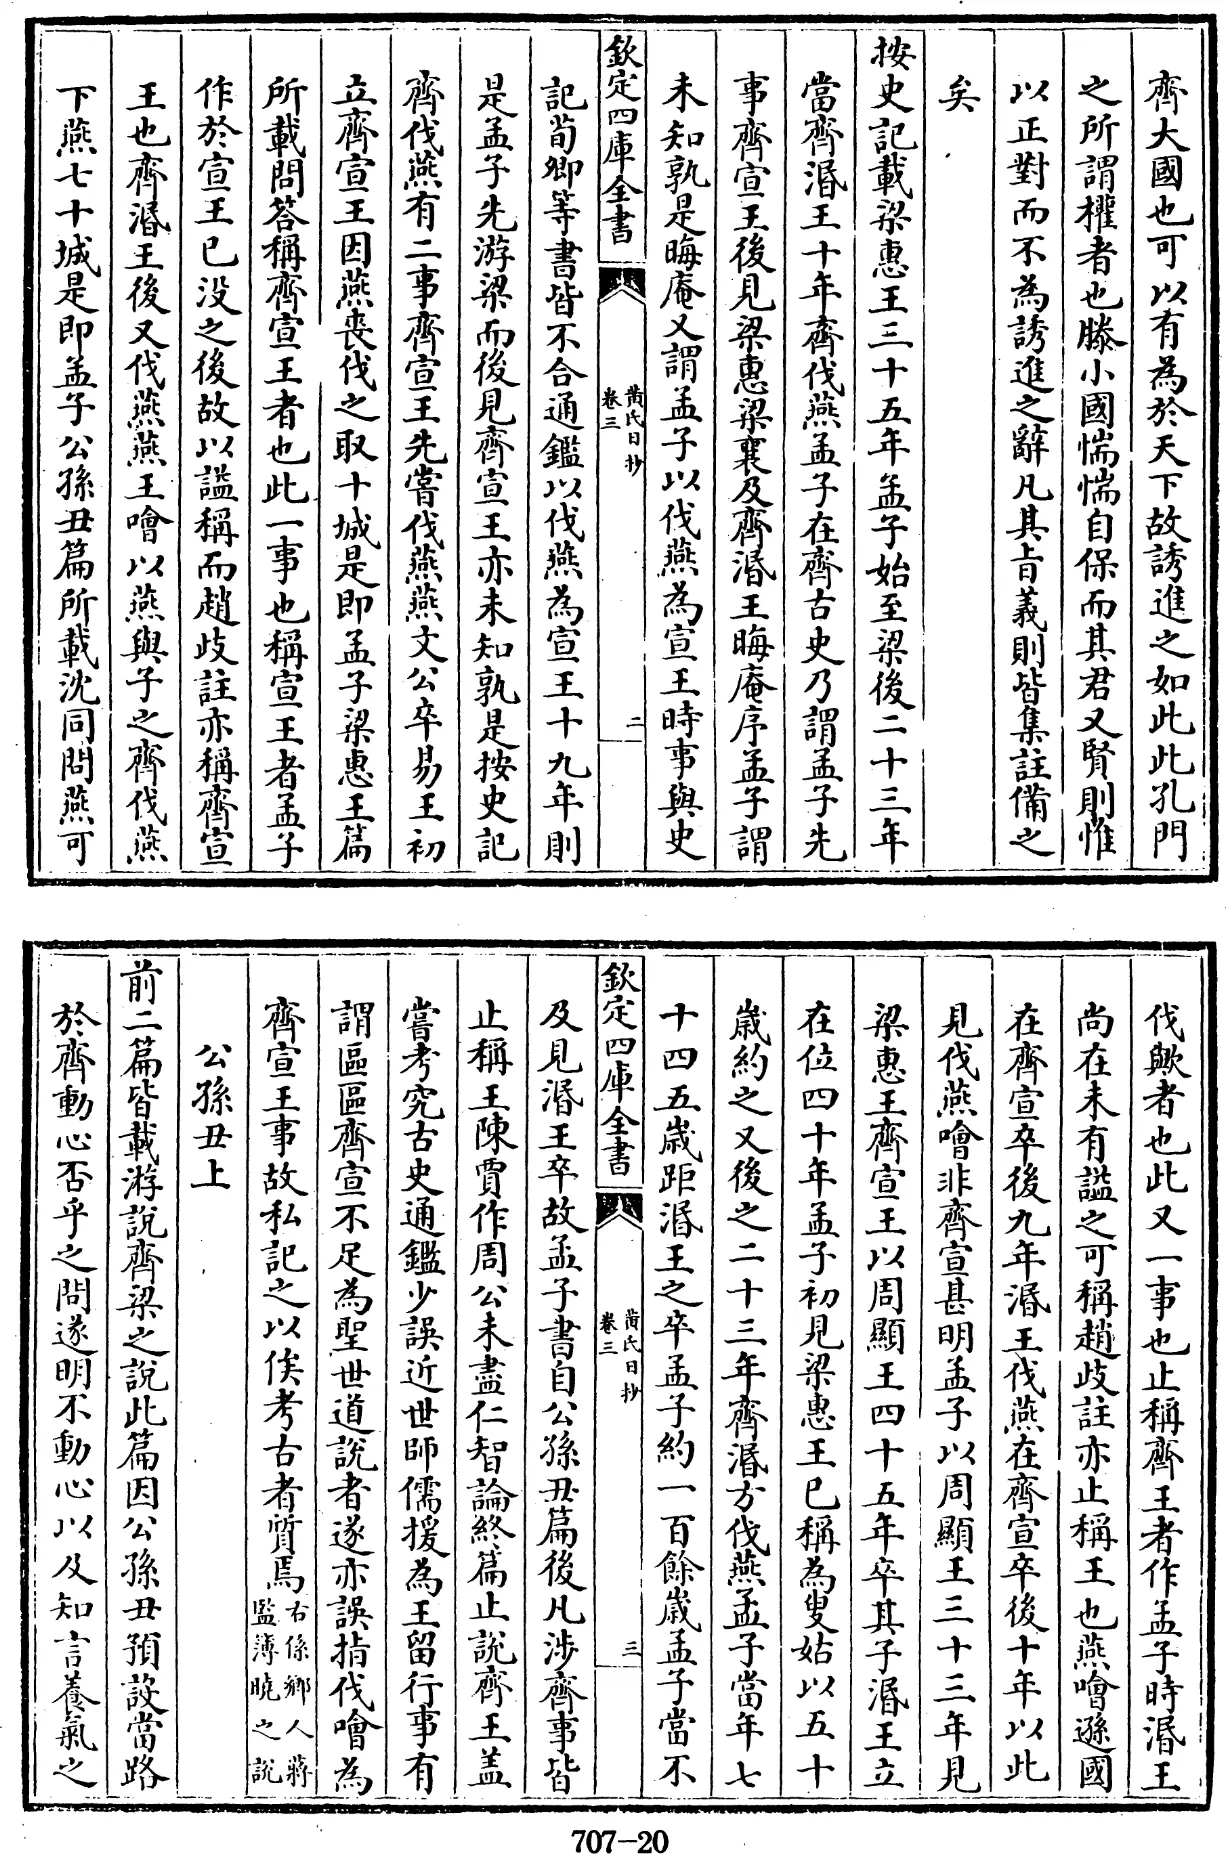 齊大國也可以有為於天下故誘進之如此此孔門
之所謂權者也滕小國惴惴自保而其君又賢則惟
以正對而不為誘進之辭凡其旨義則皆集註備之
矣
按史記載梁惠王三十五年孟子始至梁後二十三年
當齊湣王十年齊伐燕孟子在齊古史乃謂孟子先
事齊宣王後見梁惠梁襄及齊湣王晦庵序孟子謂
未知孰是晦庵又謂孟子以伐燕為宣王時事與史
欽定四庫全書
黄氏日抄
卷三
二
記荀卿等書皆不合通鑑以伐燕為宣王十九年則
是孟子先游梁而後見齊宣王亦未知孰是按史記
齊伐燕有二事齊宣王先嘗伐燕燕文公卒易王初
立齊宣王因燕喪伐之取十城是即孟子梁惠王篇
所載問答稱齊宣王者也此一事也稱宣王者孟子
作於宣王已没之後故以諡稱而趙歧註亦稱齊宣
王也齊湣王後又伐燕燕王噲以燕與子之齊伐燕
下燕七十城是即孟子公孫丑篇所載沈同問燕可
伐歟者也此又一事也止稱齊王者作孟子時湣王
尚在未有諡之可稱趙歧註亦止稱王也燕噲遜國
在齊宣卒後九年湣王伐燕在齊宣卒後十年以此
見伐燕噲非齊宣甚明孟子以周顯王三十三年見
梁惠王齊宣王以周顯王四十五年卒其子湣王立
在位四十年孟子初見梁惠王已稱為叟姑以五十
歲約之又後之二十三年齊湣方伐燕孟子當年七
十四五歲距湣王之卒孟子約一百餘歲孟子當不
欽定四庫全書
黄氏日抄
卷三
三
及見湣王卒故孟子書自公孫丑篇後凡涉齊事皆
止稱王陳賈作周公未盡仁智論終篇止說齊王盖
嘗考究古史通鑑少誤近世師儒援為王留行事有
謂區區齊宣不足為聖世道說者遂亦誤指伐噲為
齊宣王事故私記之以俟考古者質焉右係鄉人蔣
監簿曉之說
公孫丑上
前二篇皆載游說齊梁之說此篇因公孫丑預設當路
於齊動心否乎之問遂明不動心以及知言養氣之
707-20